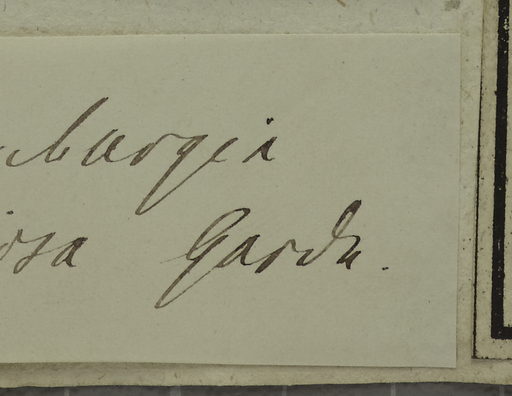 bargia
osa Gardn.